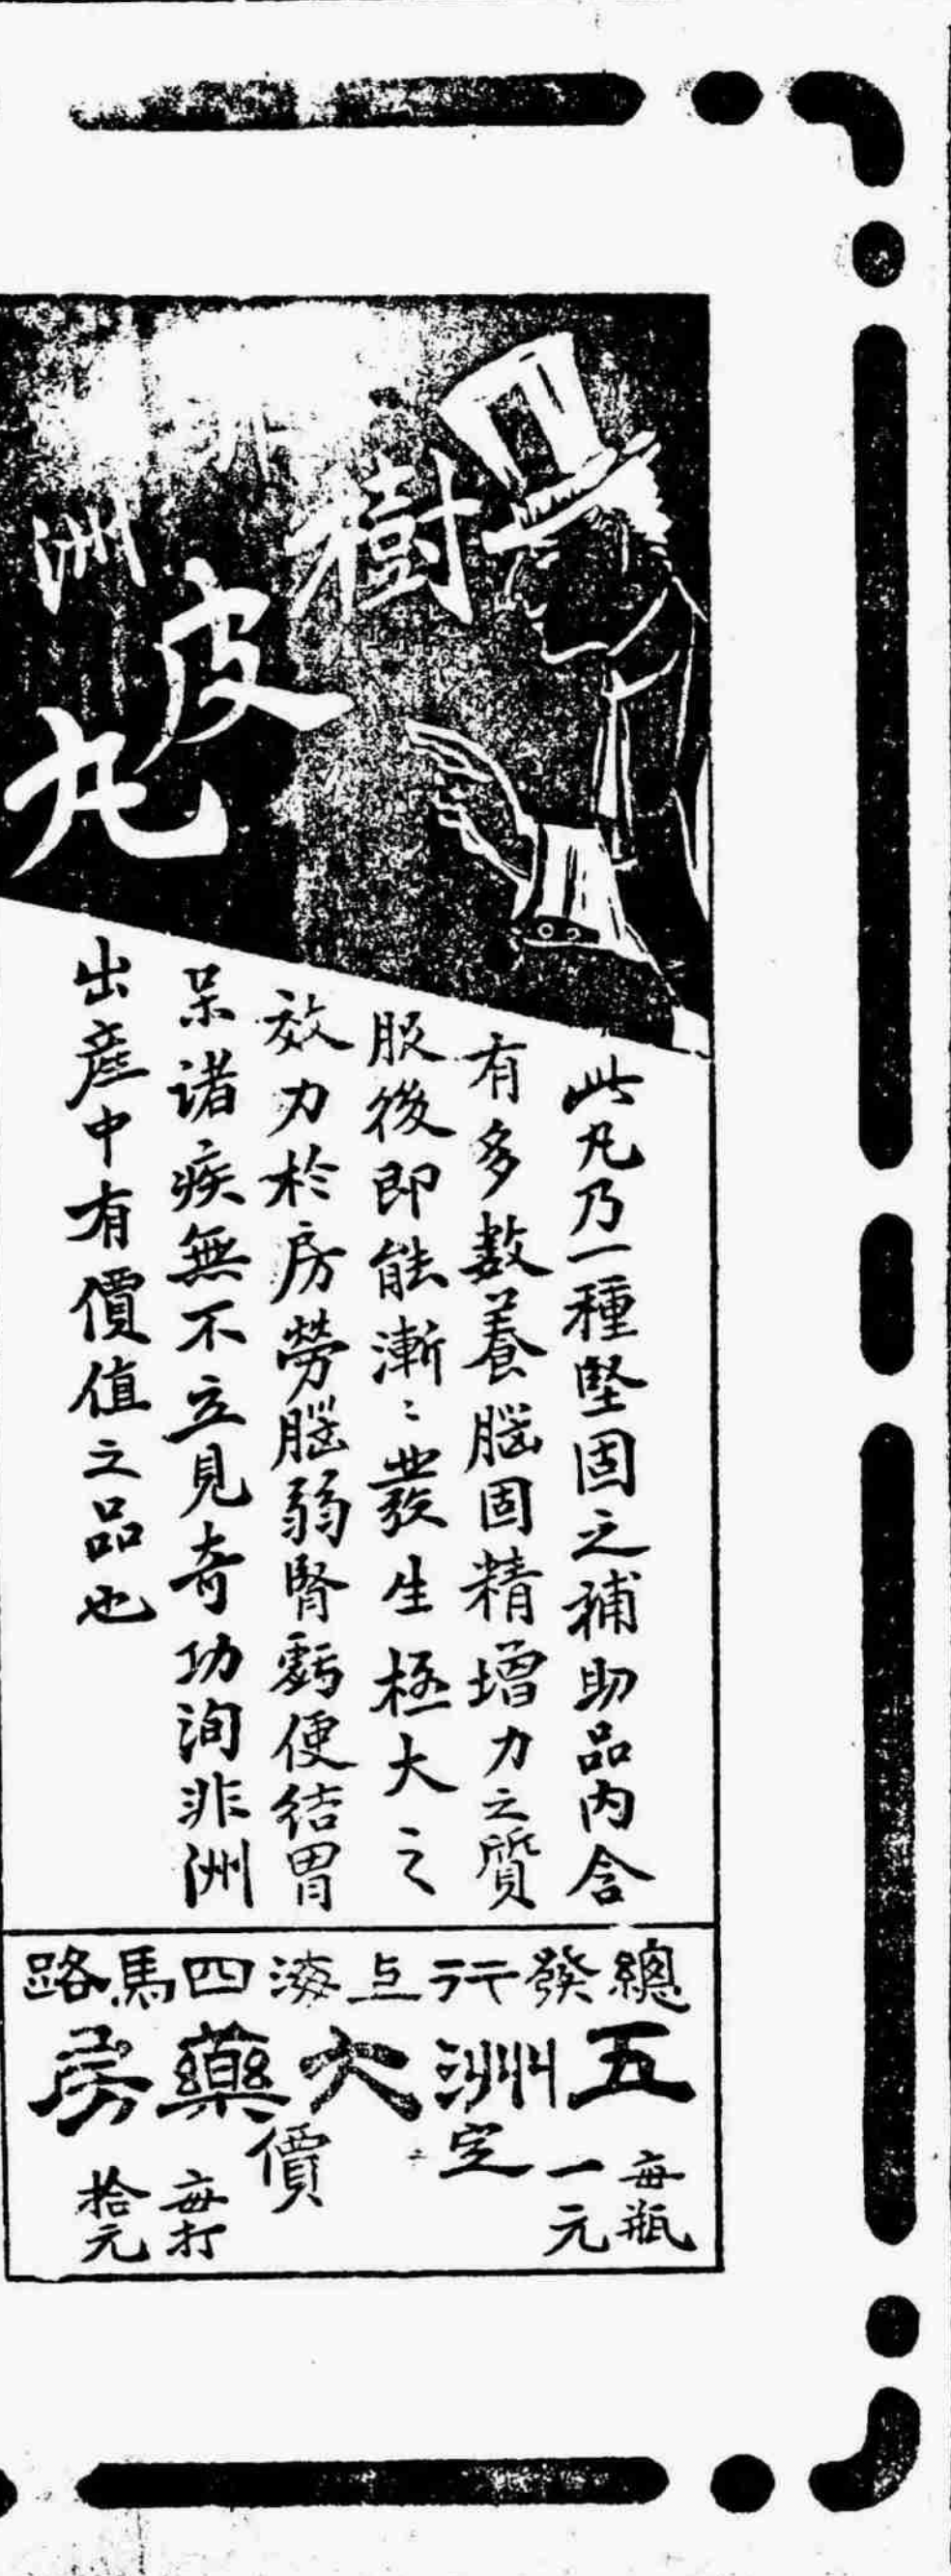 非洲
樹皮丸
此丸乃一種堅固之補助品内含
有多數養腦固精增力之質
服後即能漸〻發生極大之
效力於房勞腦弱腎虧便結胃
呆諸疾無不立見奇功洵非洲
出產中有價值之品也
總發行上海四馬路
五洲大藥房
定價
每瓶一元
每打拾元